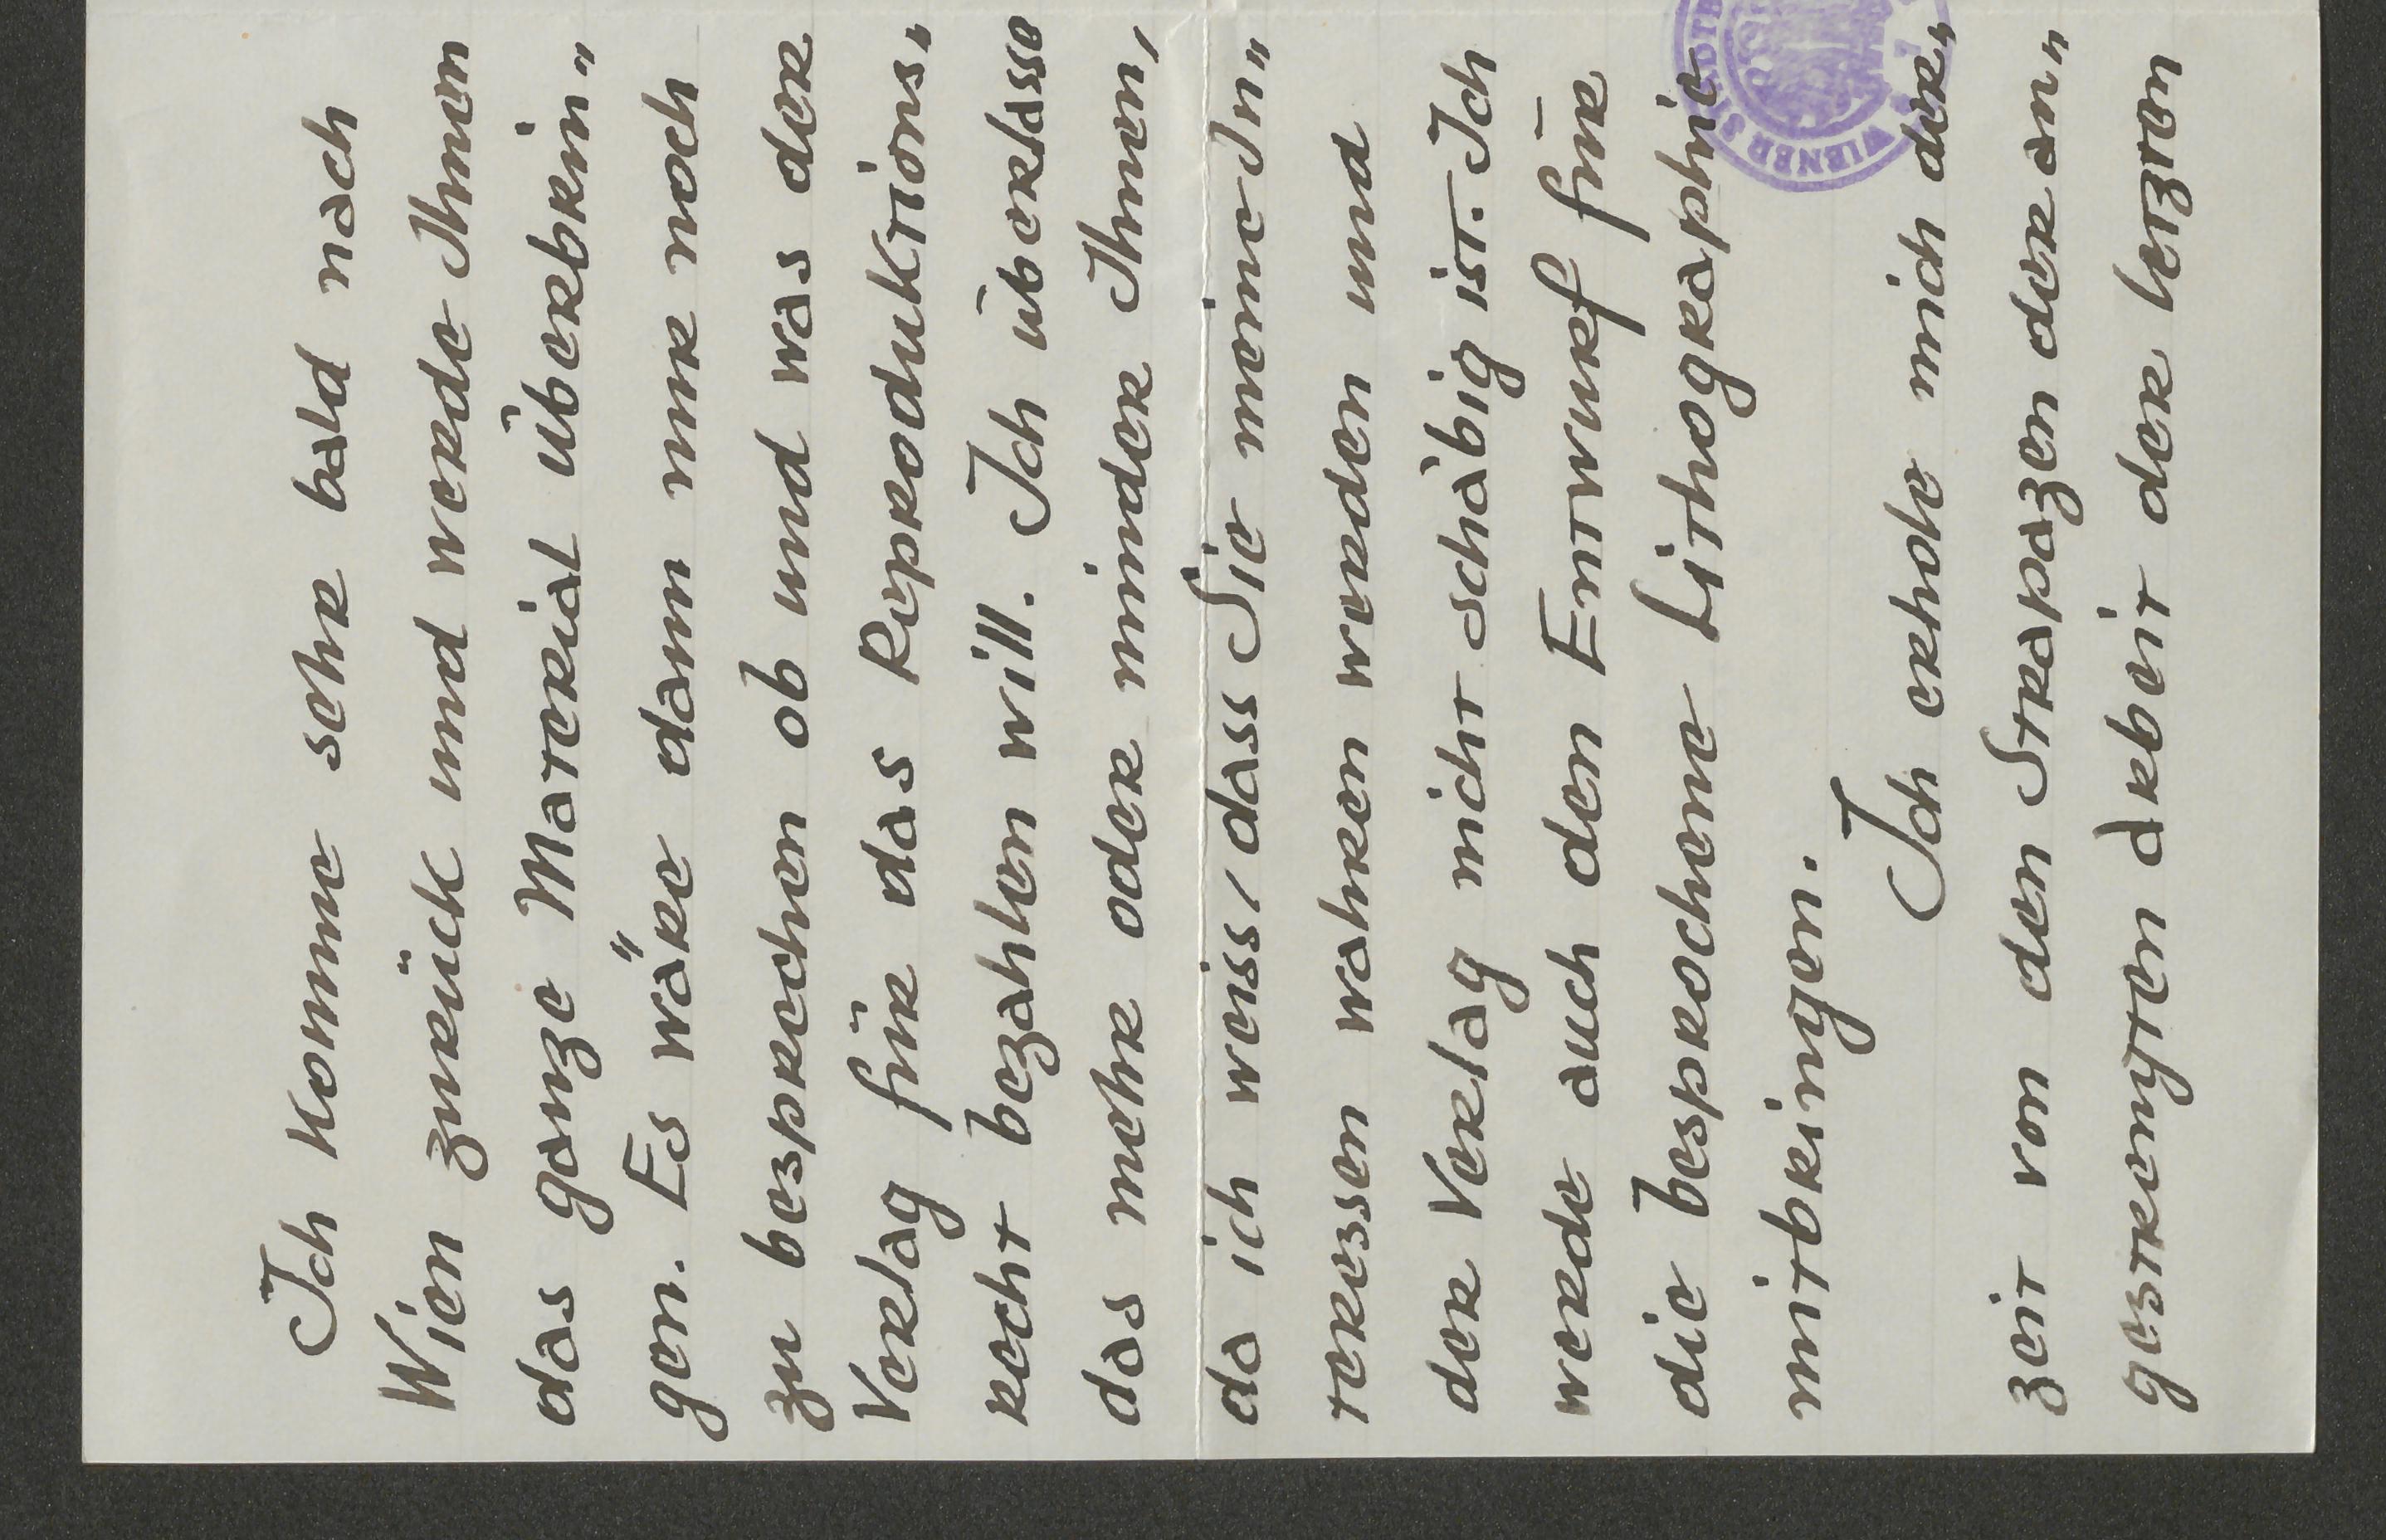 Ich komme sehr bald nach
Wien zurück und werde Ihnen
das ganze Material überbrin„
gen. Es wäre dann nur noch
zu besprechen ob und was der
Verlag für das Reproduktions„
recht bezahlen will. Ich überlasse
das mehr oder minder Ihnen,
da ich weiss, dass Sie meine In„
teressen wahren werden und
der Verlag nicht schäbig ist. Ich
werde auch den Entwurf für
die besprochene Lithographie
mitbringen.
Ich erhole mich der„
zeit von den Strapazen der an„
gestrengten Arbeit der letzten
WIENER